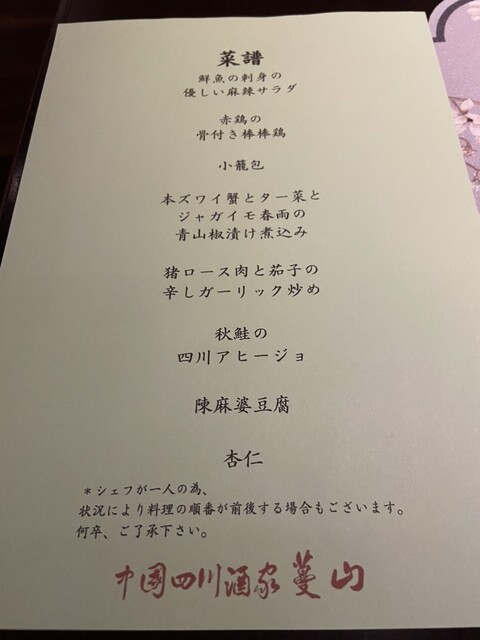 菜譜
鮮魚の刺身の
優しい麻辣サラダ
赤鶏の
骨付き棒棒鶏
小籠包
本ズワイ蟹とター菜と
ジャガイモ春雨の
青山椒漬け煮込み
猪ロース肉と茄子の
辛しガーリック炒め
秋鮭の
四川アヒージョ
陳麻婆豆腐
杏仁
＊シェフが一人の為、
状況により料理の順番が前後する場合もございます。
何卒、ご了承下さい。
中國四川酒家蔓山